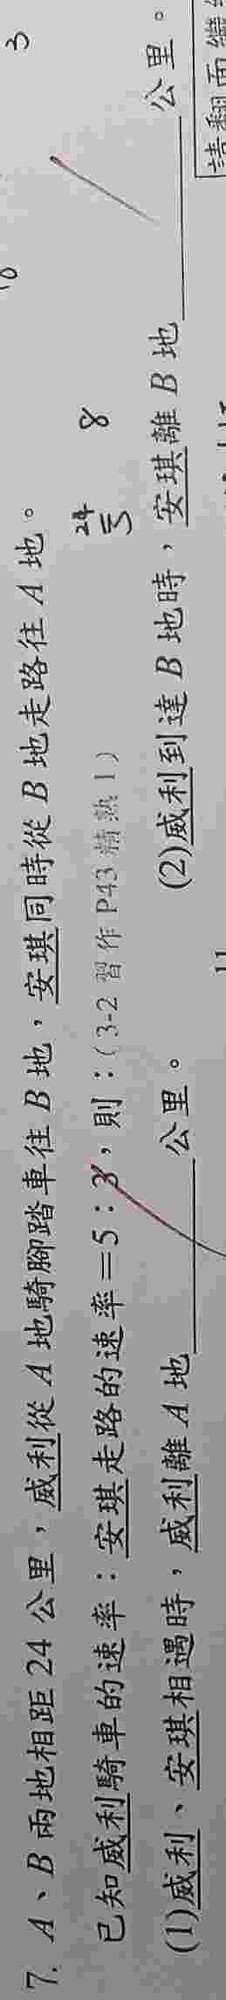 3
7. A、B 兩地相距 24 公里，威利從 A 地騎腳踏車往 B 地，安琪同時從 B 地走路往 A 地。
已知威利騎車的速率：安琪走路的速率＝5：3，則：（3-2 習作 P43 精熟 1）
24
5 8
(1)威利、安琪相遇時，威利離 A 地＿＿＿＿公里。 (2)威利到達 B 地時，安琪離 B 地＿＿＿＿公里。
請翻面繼